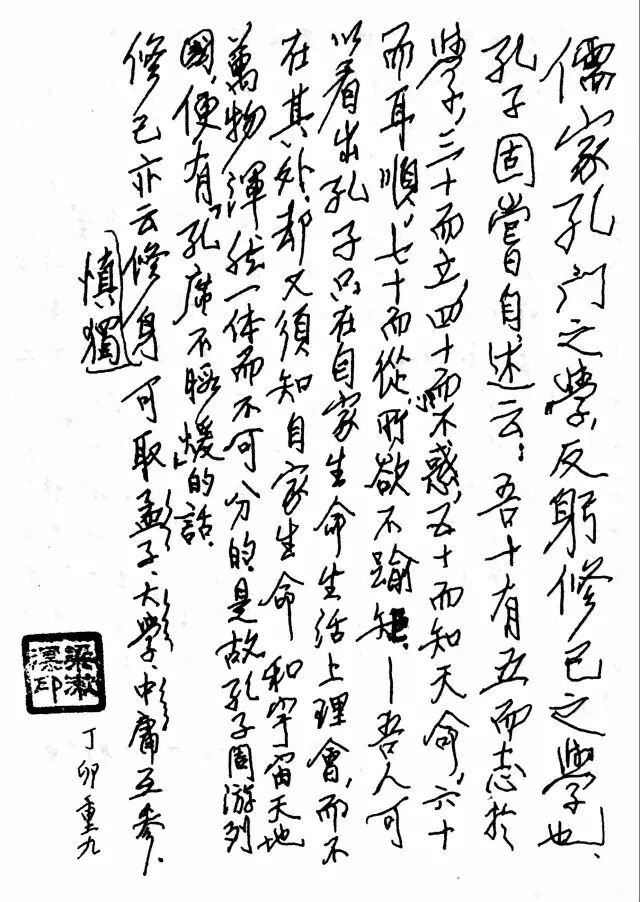 儒家孔门之學,反躬修己之學也、
孔子固嘗自述云:吾十有五而志於
學,三十而立,四十而不惑,五十而知天命,六十
而耳順,七十而從所欲不踰矩、—吾人可
以看出孔子只在自家生命生活上理會,而不
在其外、却又須知自家生命和宇宙天地
萬物渾然一体而不可分的、是故孔子周游列
國,便有"孔席不暇煖"的話、
修己亦云修身可取孟子、大學、中庸互參、
慎獨
丁卯重九
梁漱溟印